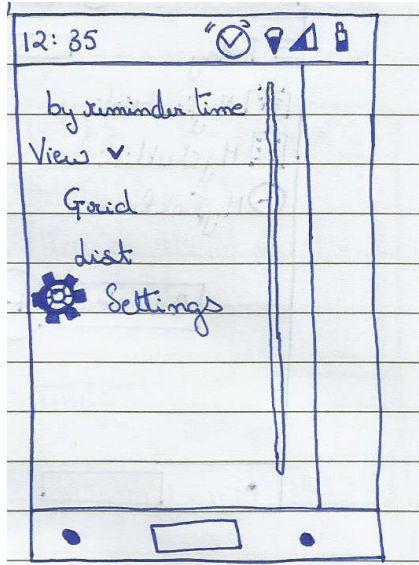 12:35
by reminder time
View
Grid
List
Settings